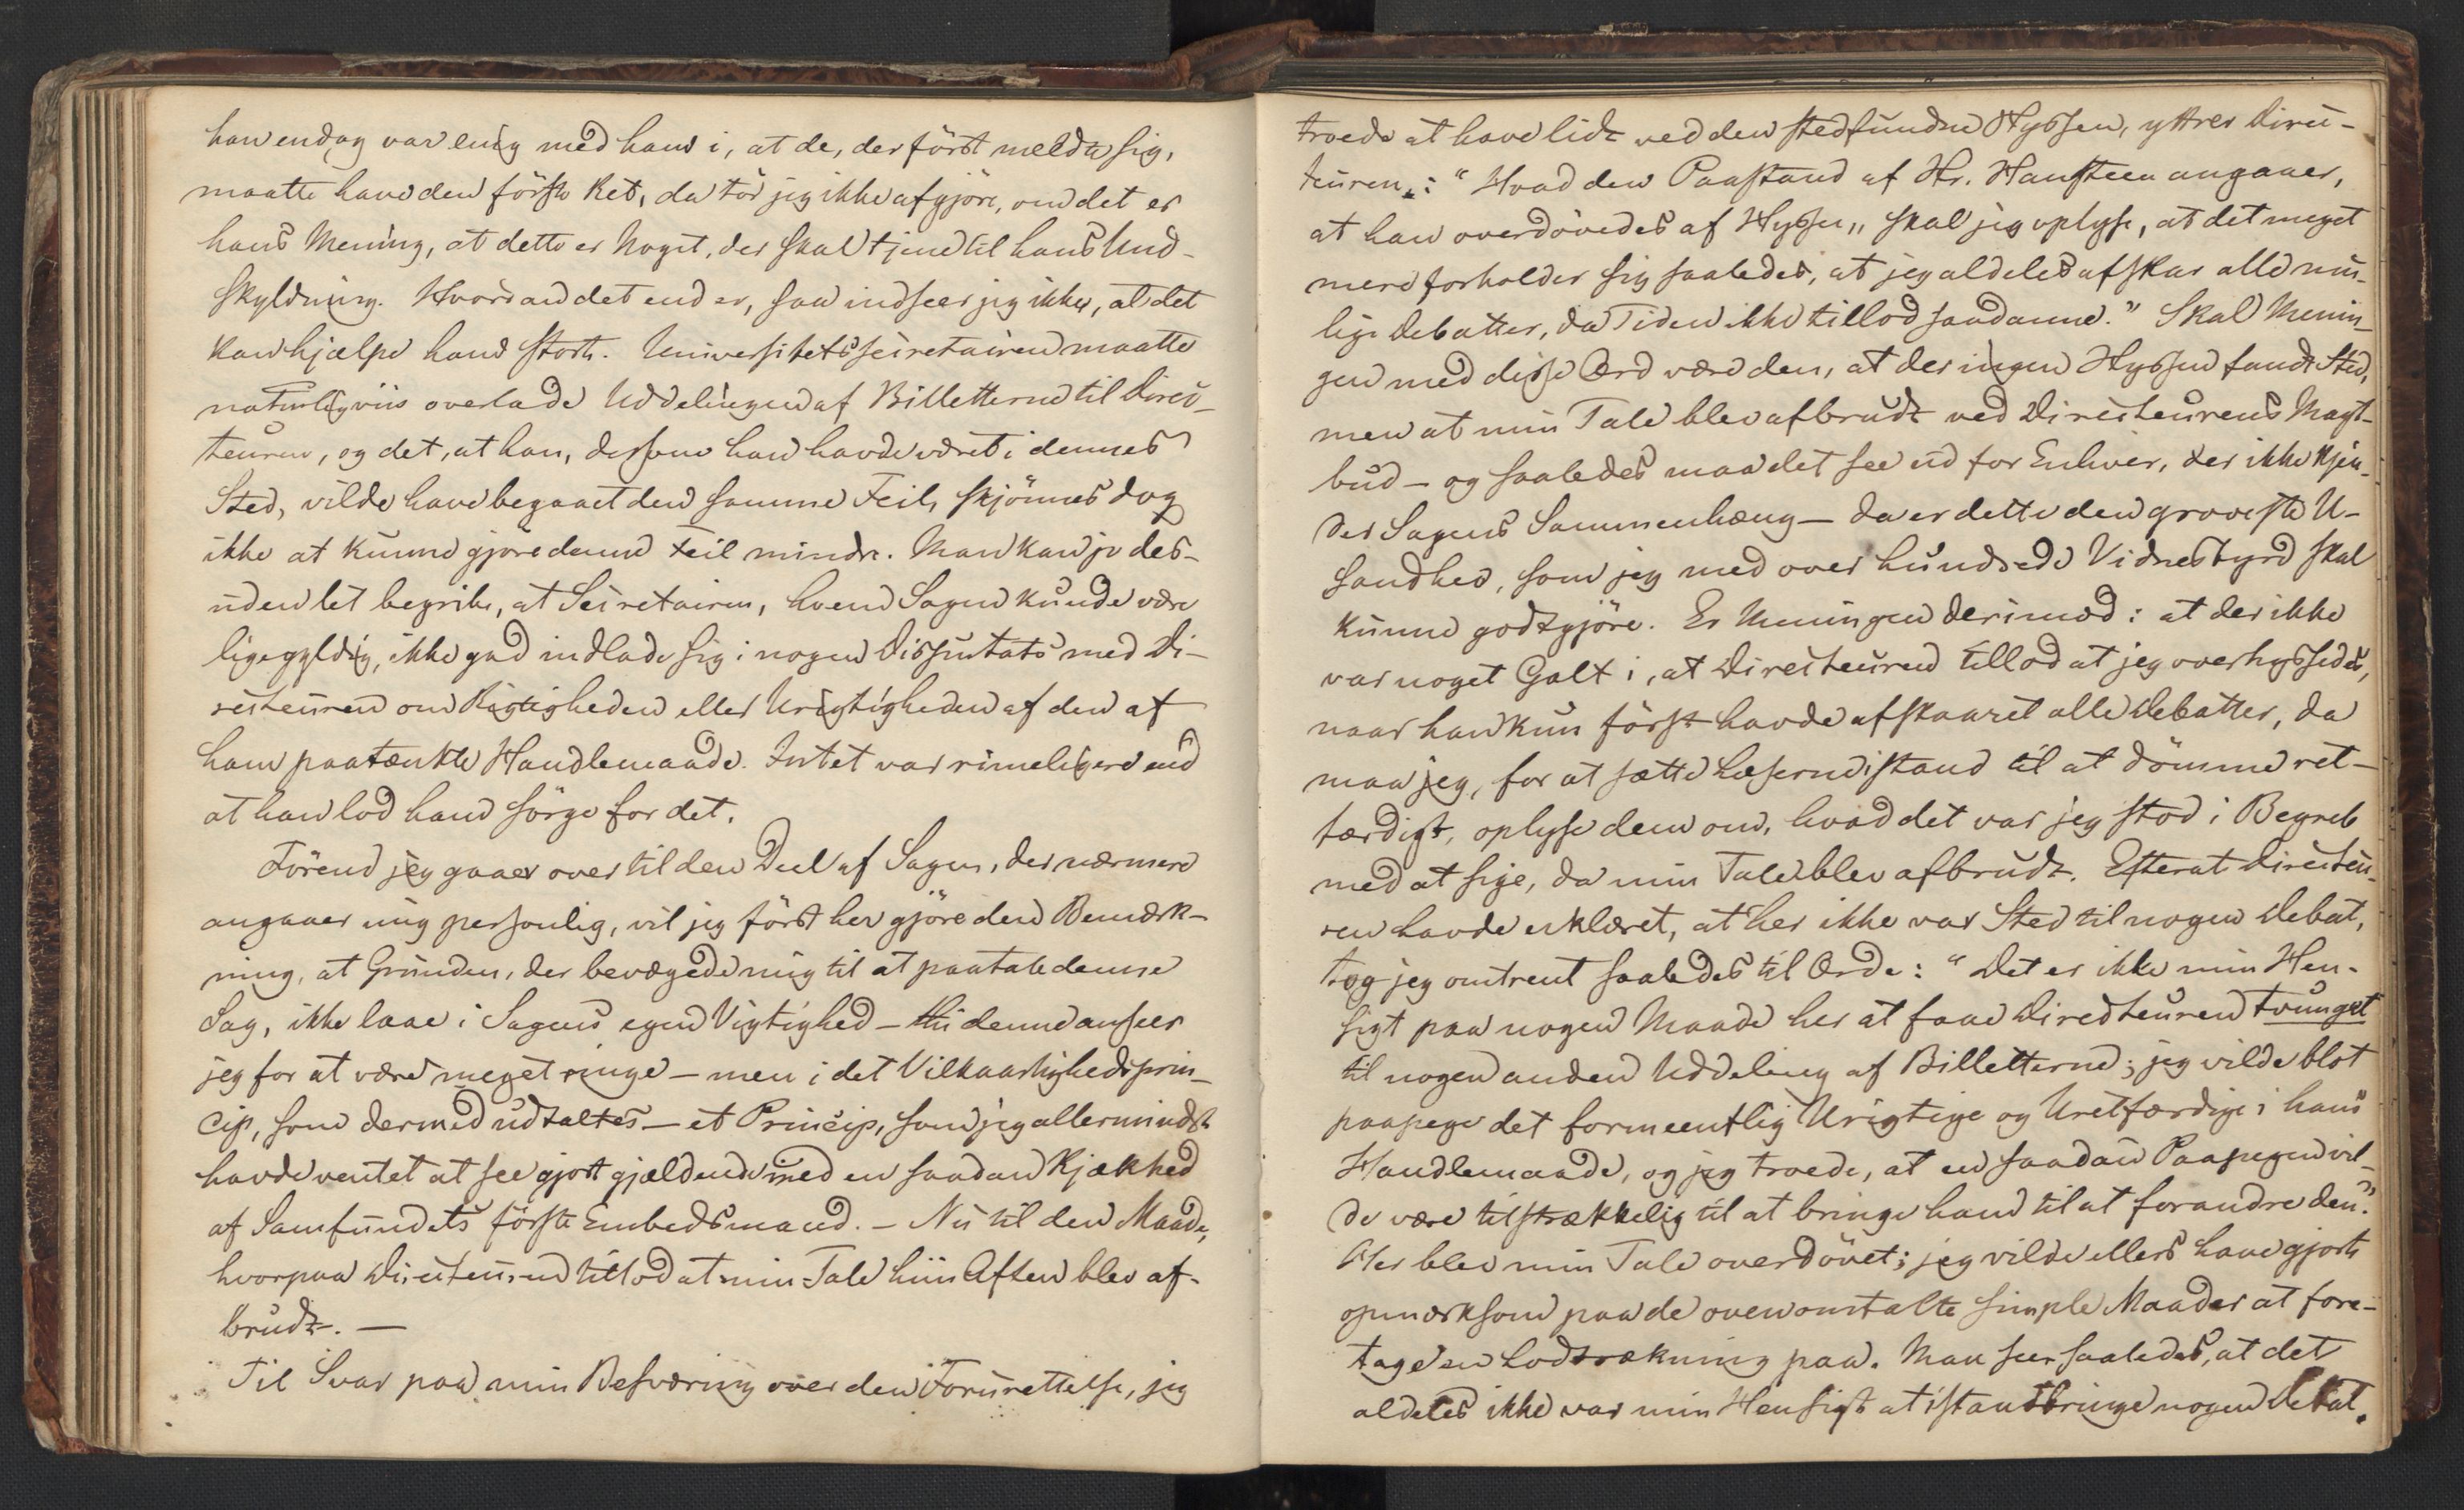 han endog var enig med ham i, at de, der först meldte sig,
maatte have den förste Ret, da tör jeg ikke afgjöre, om det er
hans Mening, at dette er Noget, der skal tjene til hans Und-
skyldning. Hvordan det end er, saa indseer jeg ikke, at det
kan hjælpe ham stort. Universitetssecretairen maatte
naturligviis overlade Uddelingen af Billetterne til Direc-
teuren, og det, at han, dersom han havde været i dennes
Sted, vilde have begaaet den samme Feil, skjönnes dog
ikke at kunne gjöre denne Feil mindre. Man kan jo des-
uden let begribe, at Secretairen, hvem Sagen kunde være
ligegyldig, ikke gad indlade sig i nogen Disputats med Di-
recteuren om Rigtigheden eller Urigtigheden af den af
ham paatænkte Handlemaade. Intet var rimeligere end
at han lod ham sörge for det.
Förend jeg gaaer over til den Deel af Sagen, der nærmere
angaaer mig personlig, vil jeg först her gjöre den Bemærk-
ning, at Grunden, der bevægede mig til at paatale denne
Sag, ikke laae i Sagens egen Vigtighed – thi denne anseer
jeg for at være meget ringe – men i det Vilkaarlighedsprin-
cip, som dermed udtaltes – et Princip, som jeg allermindst
havde ventet at see gjort gjældende med en saadan Kjækhed
af Samfundets förste Embedsmand. – Nu til den Maade,
hvorpaa Directeuren tillod at min Tale hiin Aften blev af-
brudt. –
Til Svar paa min Besværing over den Forurettelse, jeg
troede at have lidt ved den stedfundne Hyssen, yttrer Direc-
teuren: "Hvad den Paastand af Hr. Hansteen angaaer,
at han overdövedes af Hyssen" skal jeg oplyse, at det meget
mere forholder sig saaledes, at jeg aldeles afskar alle min-
lige Debatter, da Tiden ikke tillod saadanne." Skal Menin-
gen med disse Ord være den, at der ingen Hyssen fandt Sted,
men at min Tale blev afbrudt ved Directeurens Magt-
bud – og saaledes maa det see ud for Enhver, der ikke kjen-
der Sagens Sammenhæng – da er dette den groveste U-
sandhed, som jeg med over hundrede Vidnesbyrd skal
kunne godtgjöre. Er Meningen derimod: at der ikke
var noget Galt i, at Directeuren tillod at jeg overhyssedes,
naar han kun först havde afskaaret alle Debatter, da
maa jeg, for at sætte Læserne istand til at dömme ret-
færdigt, oplyse dem om, hvad det var jeg stod i Begreb
med at sige, da min Tale blev afbrudt. Efterat Directeu-
ren havde erklæret, at her ikke var Sted til nogen Debat,
tog jeg omtrent saaledes til Orde: "Det er ikke min Hen-
sigt paa nogen Maade her at faae Directeuren tvunget
til nogen anden Uddeling af Billetterne; jeg vilde blot
paapege det formeentlig Urigtige og Uretfærdige i hans
Handlemaade, og jeg troede, at en saadan Paapegen vil-
de være tilstrækkelig til at bringe ham til at forandre den."
Her blev min Tale overdövet; jeg vilde ellers have gjort
opmærksom paa de ovenomtalte simple Maader at fore-
tage en Lodtrækning paa. Man seer saaledes, at det
aldeles ikke var min Hensigt at istandbringe nogen Debat.